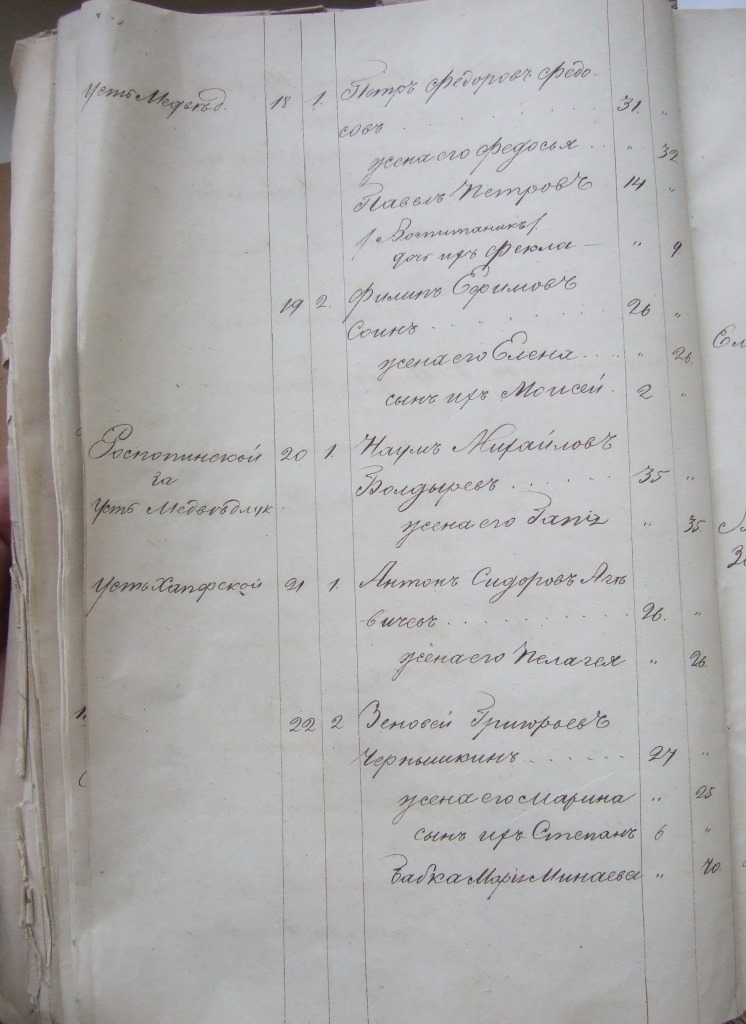 Усть Медвѣд. 18 1. Петръ Федоровъ Федо-
совъ . . . . . . 31 "
жена его Федосья . . " 32
Павелъ Петровъ 14 "
/Воспитаникъ/
дочь ихъ Фекла — " 9
19 2. Филипъ Ефимовъ
Соинъ . . . . . . 26 "
жена его Елена . . . . " 26.
сынъ ихъ Моисей. 2 "
Роспопинской 20 1. Наумъ Михайловъ
за Болдыревъ . . . . . . 35 "
Усть Медвѣдицк. жена его " 35.
Усть Хопёрской 21 1. Антонъ Сидоровъ
вичевъ . . . . . . . . 26. "
жена его Пелагея " 26
22 2 Зеновей Григорьевъ
Чернышкинъ . . . . . . 27 "
жена его Марина " 25
сынъ ихъ Степанъ 6 "
Бабка Марья Минаева " 70.